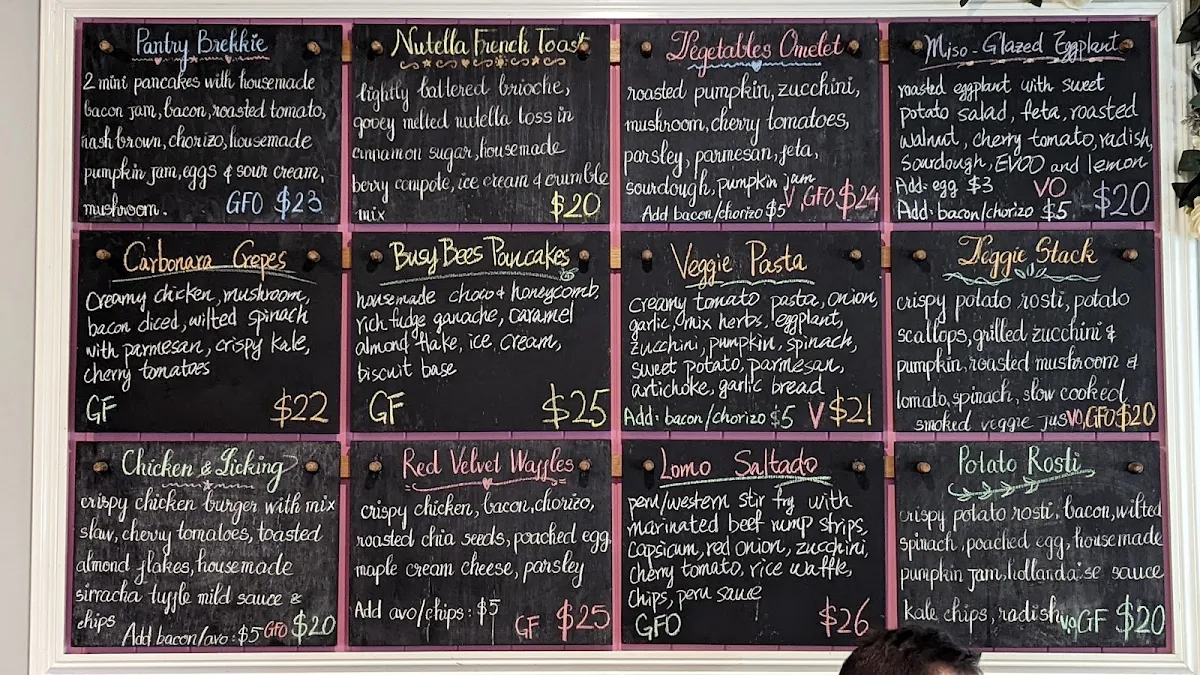 Pantry Brekkie
2 mini pancakes with housemade
bacon jam, bacon, roasted tomato,
hash brown, chorizo, housemade
pumpkin jam, eggs & sour cream,
mushroom. GFO $23
Nutella French Toast
lightly battered brioche,
gooey melted nutella toss in
cinnamon sugar, housemade
berry compote, ice cream & crumble
mix $20
Vegetables Omelet
roasted pumpkin, zucchini,
mushroom, cherry tomatoes,
parsley, parmesan, feta,
sourdough, pumpkin jam
V, GFO $24
Add bacon/chorizo $5
Miso-Glazed Eggplant
roasted eggplant with sweet
potato salad, feta, roasted
walnut, cherry tomato, radish,
Sourdough, EVOO and lemon
Add: egg $3 VO
Add: bacon/chorizo $5 $20
Carbonara Crepes
Creamy chicken, mushroom,
bacon diced, wilted spinach
with parmesan, crispy kale,
cherry tomatoes
GF $22
Busy Bees Pancakes
housemade choco & honeycomb,
rich fudge ganache, caramel
almond flake, ice cream,
biscuit base
GF $25
Veggie Pasta
creamy tomato pasta, onion,
garlic, mix herbs, eggplant,
zucchini, pumpkin, spinach,
sweet potato, parmesan,
artichoke, garlic bread
Add: bacon/chorizo $5 V $21
Veggie Stack
crispy potato rosti, potato
scallops, grilled zucchini &
pumpkin, roasted mushroom &
tomato, spinach, slow cooked
smoked veggie jus VO, GFO $20
Chicken & Licking
crispy chicken burger with mix
slaw, cherry tomatoes, toasted
almond flakes, housemade
sirracha tuffle mild sauce &
chips Add bacon/avo: $5 GFO $20
Red Velvet Waffles
crispy chicken, bacon, chorizo,
roasted chia seeds, poached egg,
maple cream cheese, parsley
Add avo/chips: $5
GF $25
Lomo Saltado
peru/western stir fry with
marinated beef rump strips,
Capsicum, red onion, zucchini,
Cherry tomato, rice waffle,
Chips, peru sauce
GFO $26
Potato Rosti
crispy potato rosti, bacon, wilted
spinach, poached egg, housemade
pumpkin jam, hollandaise sauce
kale chips, radish VO, GF $20